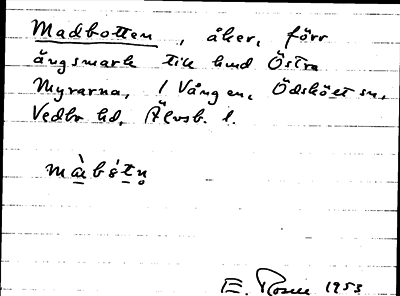 Madbotten, åker, förr
ängsmark till hmd Östra
Myrarna, i Vången, Ödsköit sn,
Vedbo hd, Älvsb. l.
màbótn̥
E. Rosell 1953